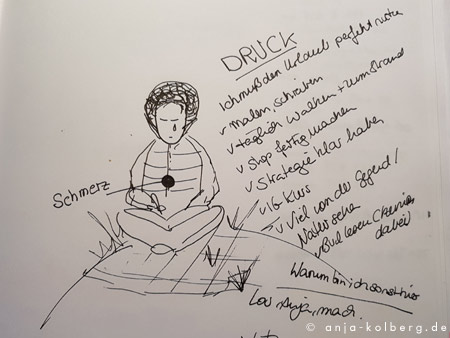 DRUCK
Ich muß den Urlaub perfekt nutzen
v malen, schreiben
v täglich walken + zum Strand
v Shop fertig machen
v Strategie klar haben
v IG Kurs
v Viel von der Gegend /
Natur sehen
v Bud lesen
dabei
Schmerz
Warum bin ich sonst hier
Los Anja, mach.
© anja-kolberg.de